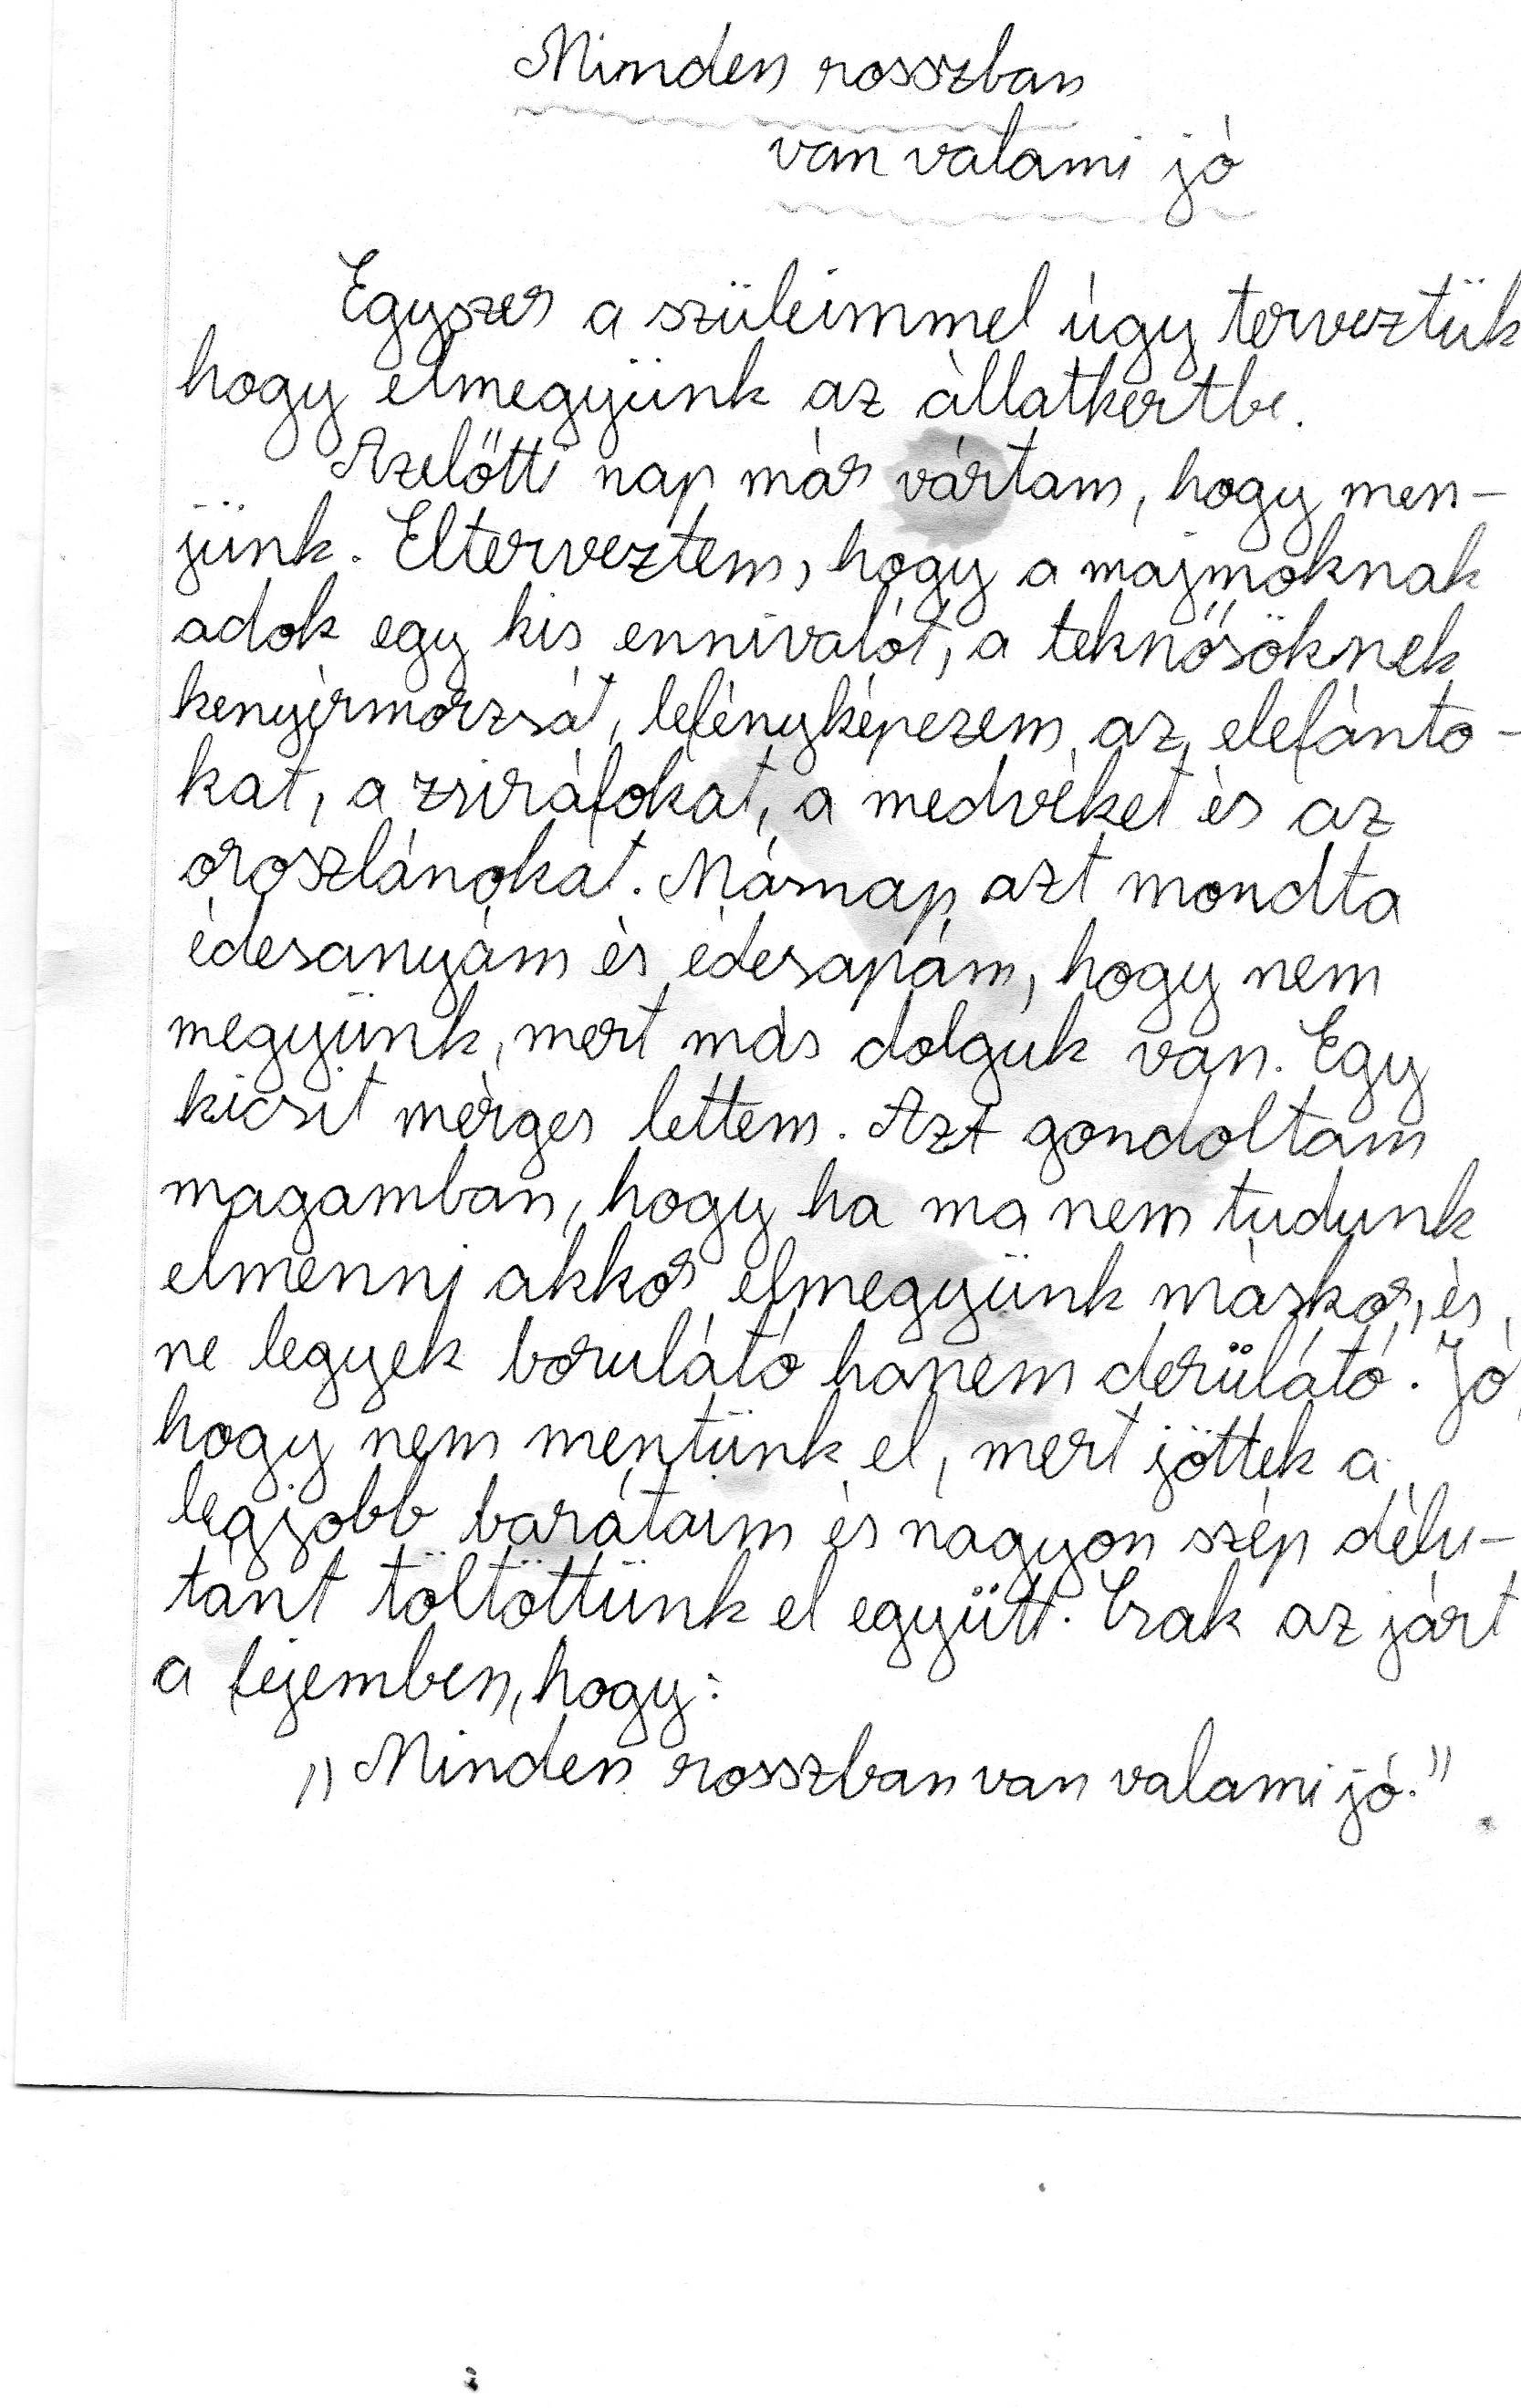 Minden rosszban
van valami jó
Egyszer a szüleimmel úgy terveztük
hogy elmegyünk az állatkertbe.
Azelőtti nap már vártam, hogy men-
jünk. Elterveztem, hogy a majmoknak
adok egy kis ennivalót, a teknősöknek
kenyérmorzsát, lefényképezem az elefánto-
kat, a zsiráfokat, a medvéket és az
oroszlánokat. Másnap azt mondta
édesanyám és édesapám, hogy nem
megyünk, mert más dolguk van. Egy
kicsit mérges lettem. Azt gondoltam
magamban, hogy ha ma nem tudunk
elmenni akkor elmegyünk máskor, és
ne legyek borulátó hanem derülátó. Jó,
hogy nem mentünk el, mert jöttek a
legjobb barátaim és nagyon szép délu-
tánt töltöttünk el együtt. Csak az járt
a fejemben, hogy:
„Minden rosszban van valami jó."